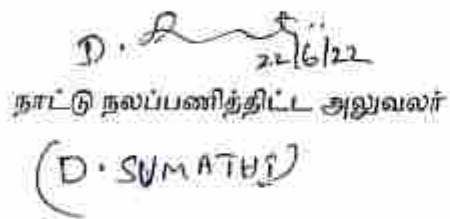 D.
22/6/22
நாட்டு நலப்பணித்திட்ட அலுவலர்
(D. SUMATHI)